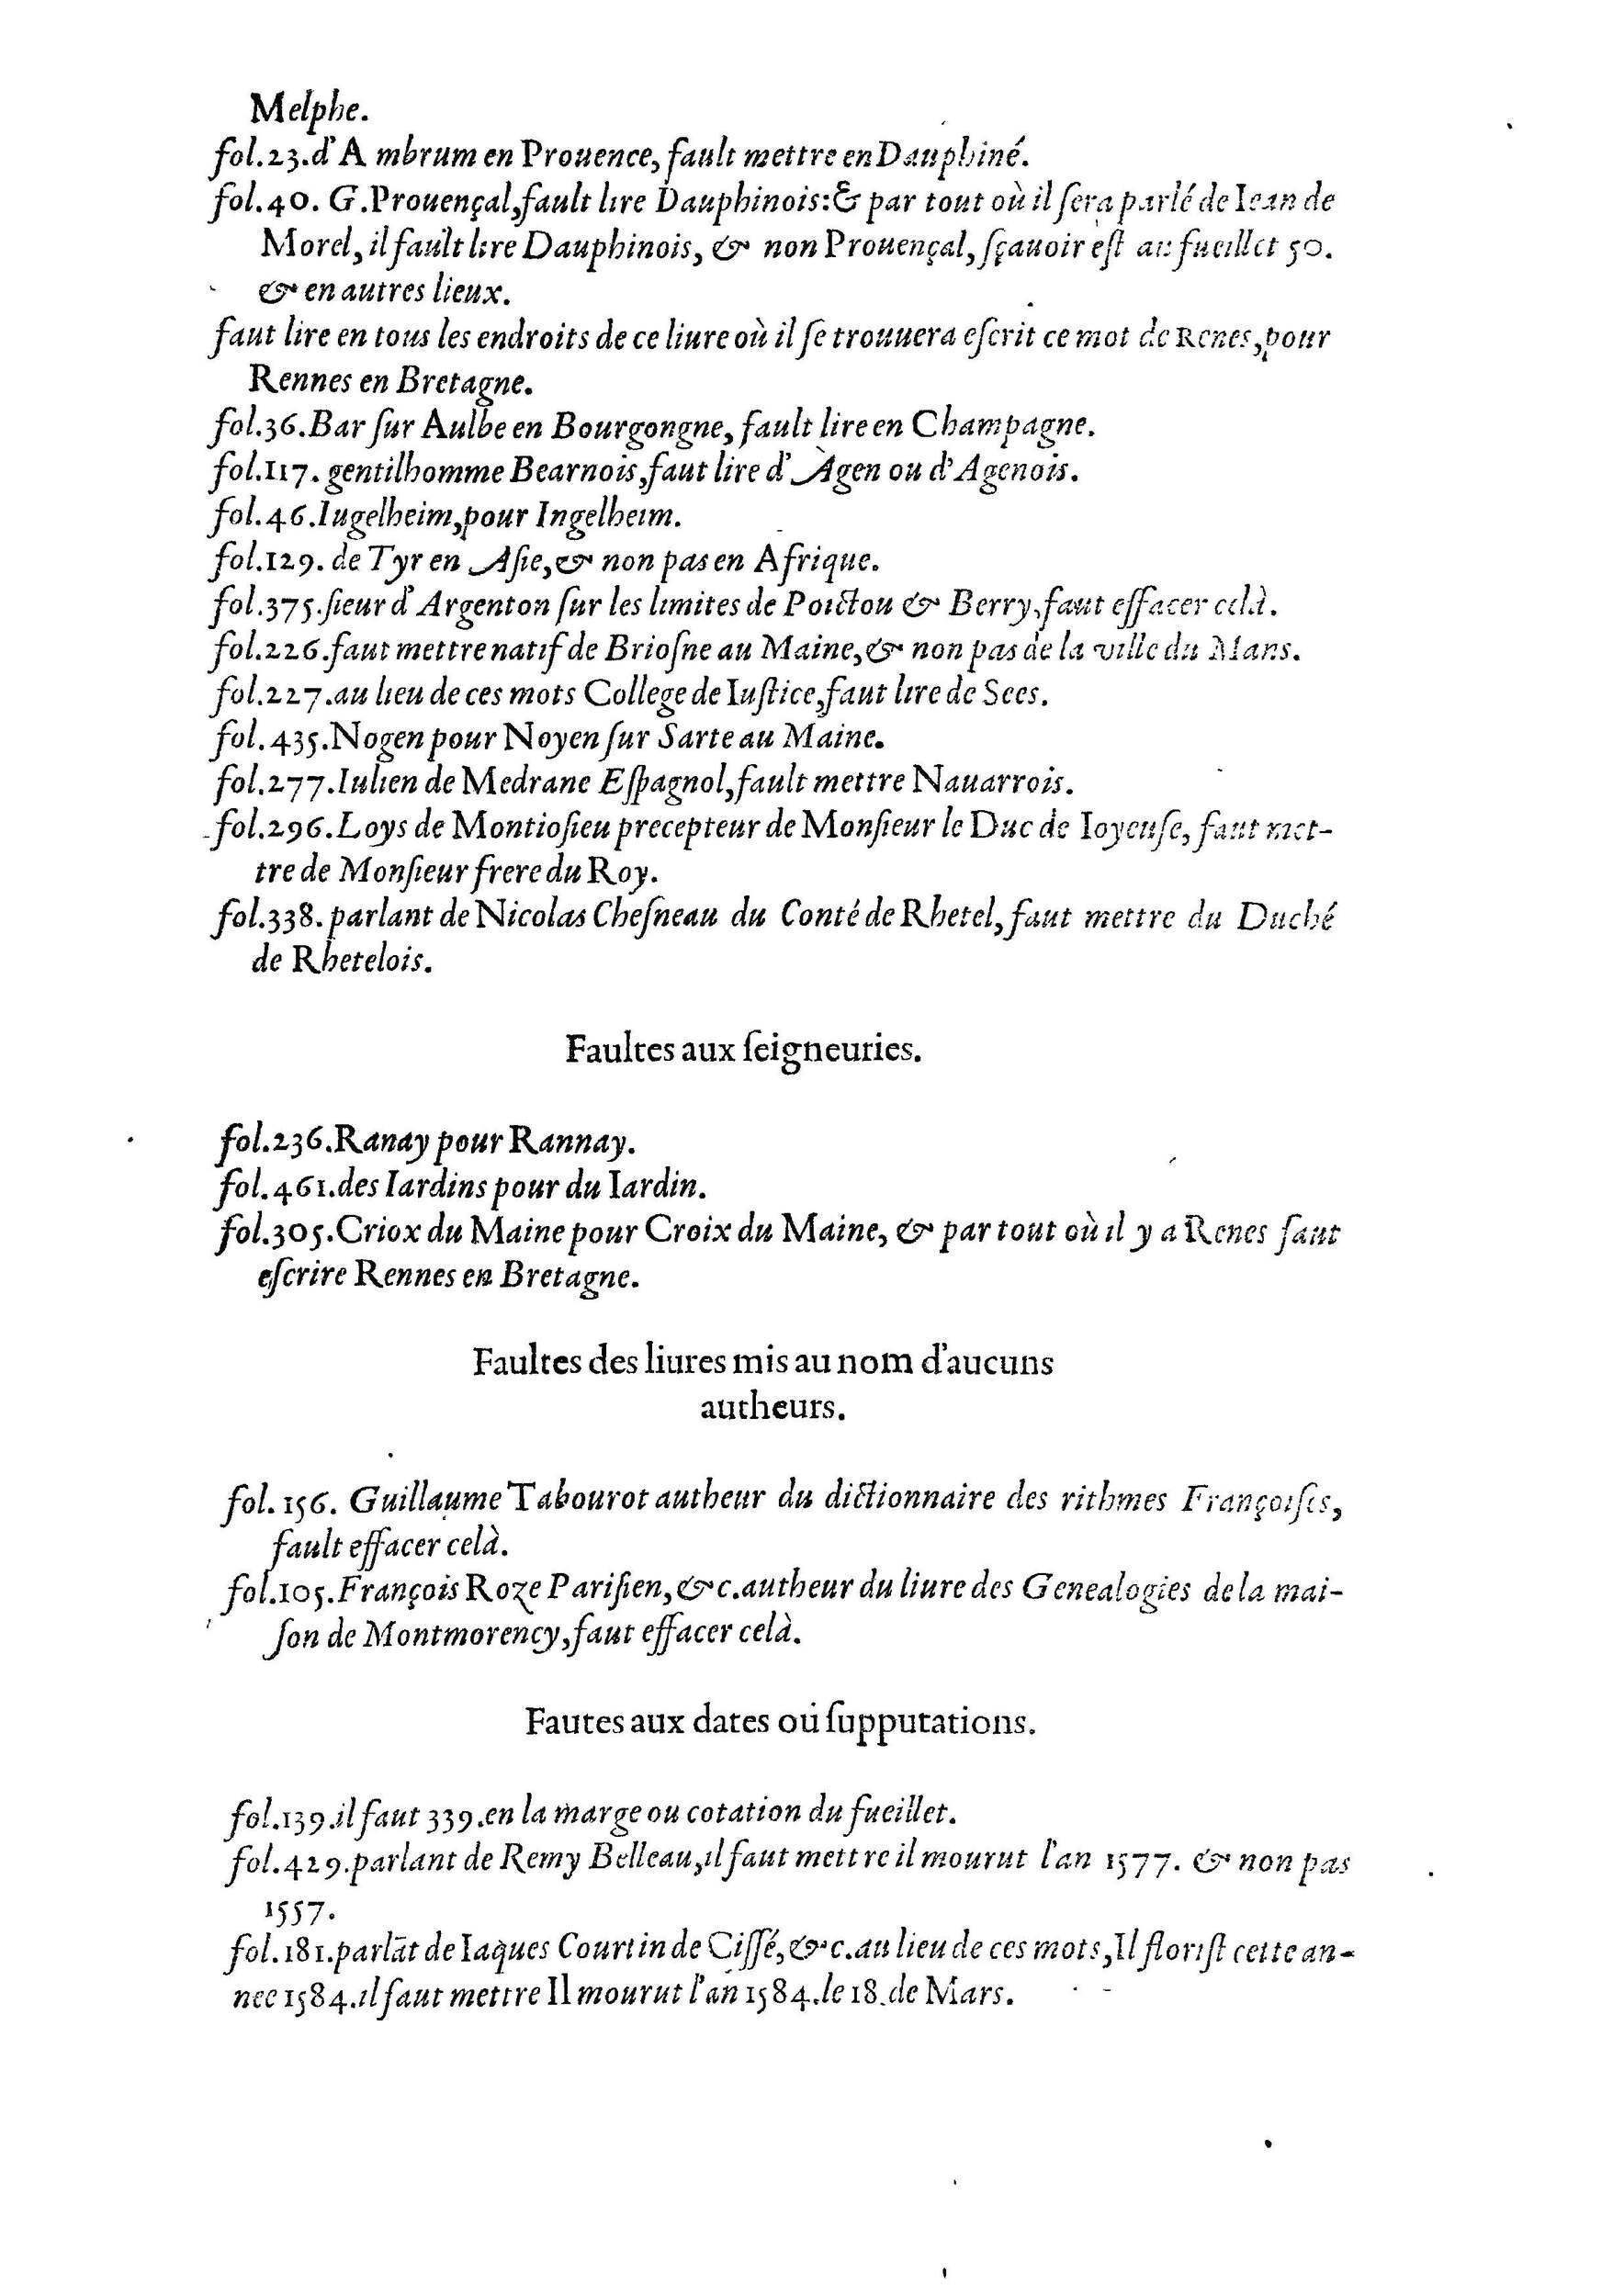 Melphe.
fol.23.d'Ambrum en Prouence, fault mettre en Dauphiné.
fol.40. G.Prouençal,fault lire Dauphinois:& par tout où il ſera parlé de Iean de
Morel, il fault lire Dauphinois, & non Prouençal, ſçauoir eſt au fueillet 50.
& en autres lieux.
faut lire en tous les endroits de ce liure où il ſe trouuera eſcrit ce mot de Renes,pour
Rennes en Bretagne.
fol.36.Bar ſur Aulbe en Bourgongne, fault lire en Champagne.
fol.117. gentilhomme Bearnois,faut lire d'Agen ou d'Agenois.
fol.46.Iugelheim,pour Ingelheim.
fol.129. de Tyr en Aſie,& non pas en Afrique.
fol.375.ſieur d'Argenton ſur les limites de Poictou & Berry,faut effacer celà.
fol.226.faut mettre natif de Brioſne au Maine,& non pas de la ville du Mans.
fol.227.au lieu de ces mots College de Iuſtice,faut lire de Sees.
fol.435.Nogen pour Noyen ſur Sarte au Maine.
fol.277.Iulien de Medrane Eſpagnol,fault mettre Nauarrois.
fol.296.Loys de Montioſieu precepteur de Monſieur le Duc de Ioyeuſe, faut met-
tre de Monſieur frere du Roy.
fol.338. parlant de Nicolas Cheſneau du Conté de Rhetel, faut mettre du Duché
de Rhetelois.
Faultes aux ſeigneuries.
fol.236.Ranay pour Rannay.
fol.461.des Iardins pour du Iardin.
fol.305.Criox du Maine pour Croix du Maine, & par tout où il y a Renes faut
eſcrire Rennes en Bretagne.
Faultes des liures mis au nom d'aucuns
autheurs.
fol.156. Guillaume Tabourot autheur du dictionnaire des rithmes Françoiſes,
fault effacer celà.
fol.105.François Roze Pariſien,&c.autheur du liure des Genealogies de la mai-
ſon de Montmorency,faut effacer celà.
Fautes aux dates ou ſupputations.
fol.139.il faut 339.en la marge ou cotation du fueillet.
fol.429.parlant de Remy Belleau,il faut mettre il mourut l'an 1577. & non pas
1557.
fol.181.parlāt de Iaques Courtin de Ciſſé,&c.au lieu de ces mots,Il floriſt cette an-
nee 1584.il faut mettre Il mourut l'an 1584.le 18.de Mars.